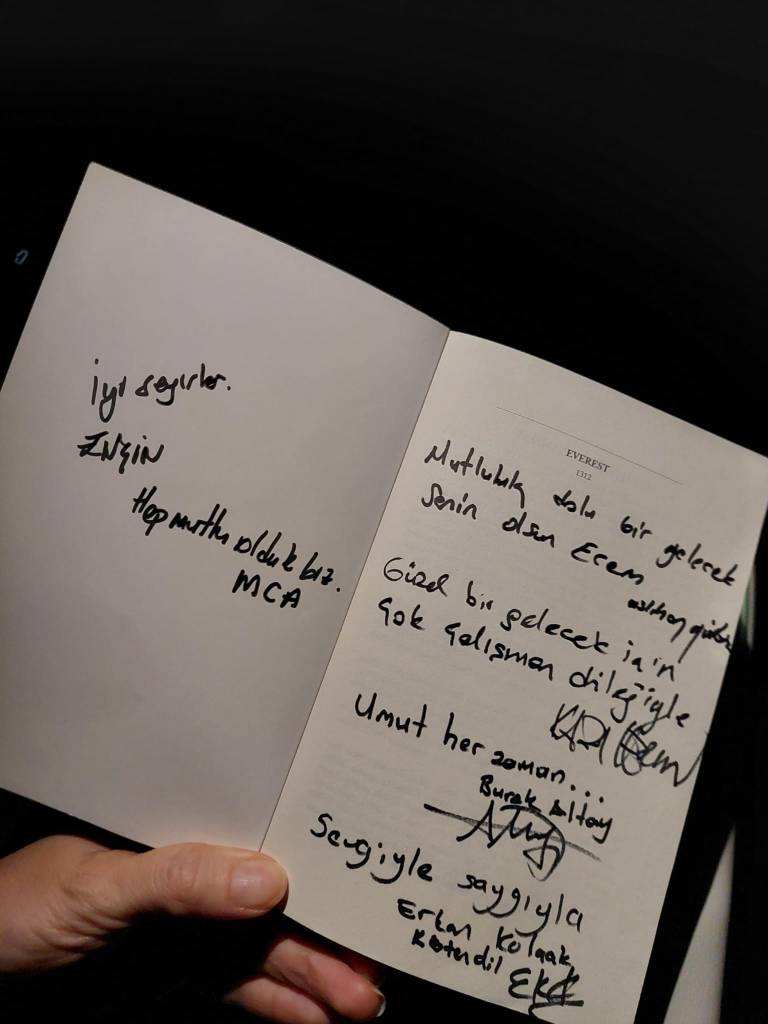 İyi seyirler.
ENGİN
Hep mutlu olduk biz.
MCA
EVEREST
1312
Mutluluk dolu bir gelecek
senin olsun Ecem
Güzel bir gelecek için
çok çalışman dileğiyle
Umut her zaman...
Burak Altay
Sevgiyle saygıyla
Ertan Kılaak
Köstendil
EKK